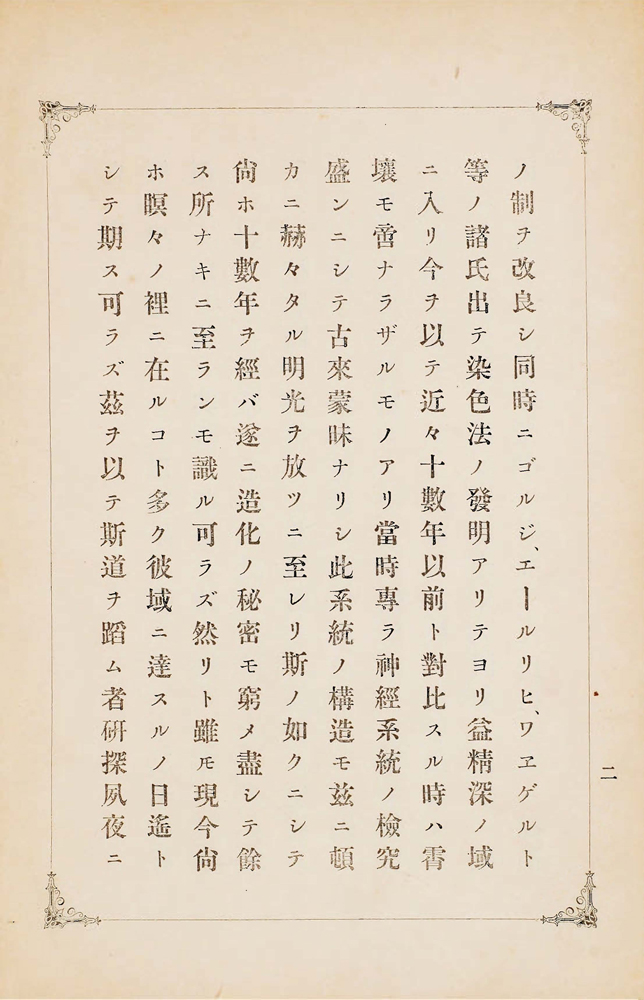 ノ制ヲ改良シ同時ニゴルジ、エールリヒ、ワヱゲルト
等ノ諸氏出テ染色法ノ發明アリテヨリ益精深ノ域
ニ入リ今ヲ以テ近々十數年以前ト對比スル時ハ霄
壤モ啻ナラザルモノアリ當時專ラ神經系統ノ檢究
盛ンニシテ古來蒙昧ナリシ此系統ノ構造モ茲ニ頓
カニ赫々タル明光ヲ放ツニ至レリ斯ノ如クニシテ
尙ホ十數年ヲ經バ遂ニ造化ノ秘密モ窮メ盡シテ餘
ス所ナキニ至ランモ識ル可ラズ然リト雖𪜈現今尙
ホ瞑々ノ裡ニ在ルコト多ク彼域ニ達スルノ日遙ト
シテ期ス可ラズ茲ヲ以テ斯道ヲ蹈ム者硏探夙夜ニ
二